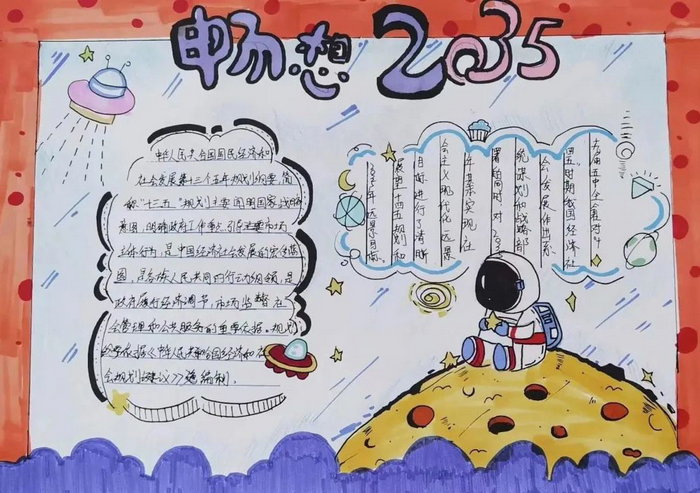 畅想2035
中华人民共合国国民经济和
社会发展第十三个五年规划纲要,简
称"十三五"规划主要阐明国家战略
意图,明确政府工作重点,引导
主体行为,是中国经济社会发展的宏伟蓝
图,是各族人民共同的行动纲领,是
政府履行经济调节,市场监督社
会管理和公共服务的重要依据。规划
纲要依据《中华人民共和国经济和社
会规划建议》编制,
十九届五中全会对十
四五时期我国经济社
会发展作出系
统谋划和战略部
署的同时对203
5年基本实现社
会主义现代化远景
目标进行了清晰
展望十四五规划和
2035年远景目标。